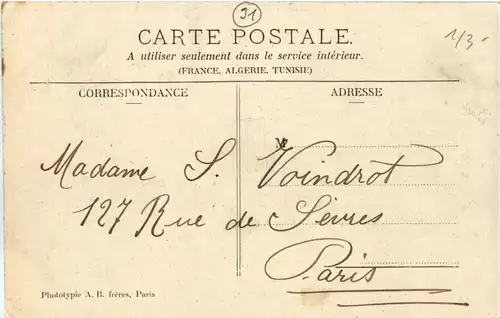 91
1/3-
CARTE POSTALE.
A utiliser seulement dans le service intérieur.
(FRANCE, ALGERIE, TUNISIE)
CORRESPONDANCE
ADRESSE
M
Madame S. Voindrot
127 Rue de Sèvres
Paris
Phototypie A. B. frères, Paris